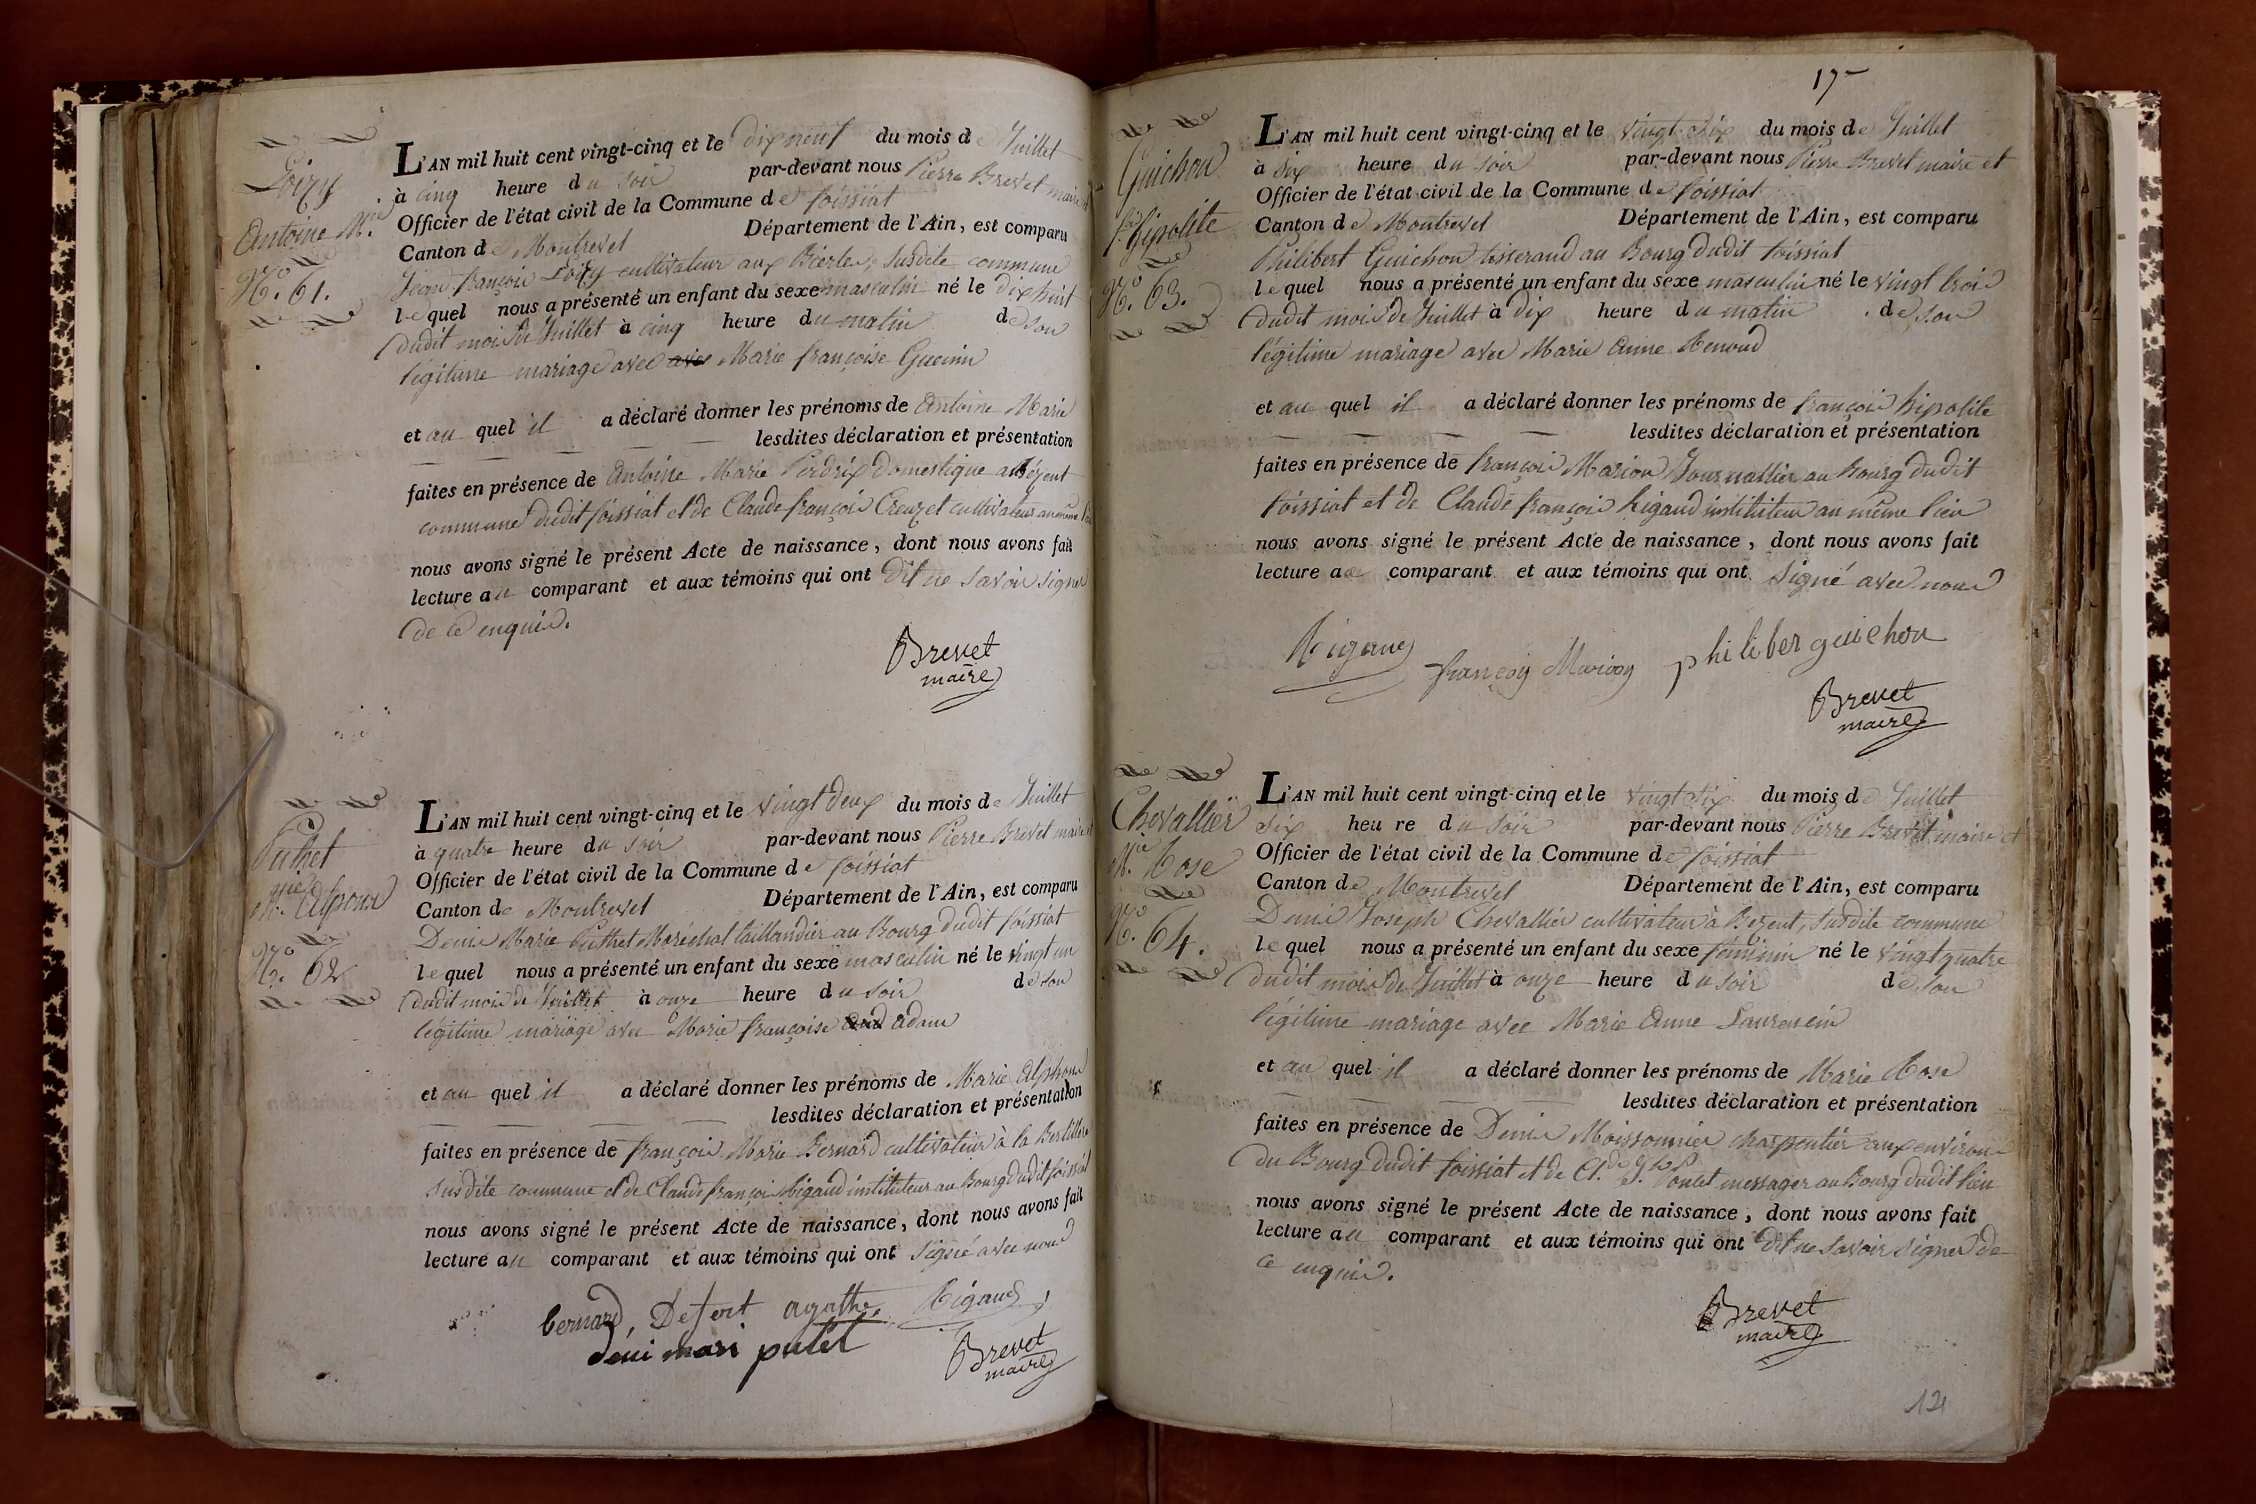 Loizy
Antoine M.ie
N.o 61.
L'AN mil huit cent vingt-cinq et le dix neuf du mois de Juillet
à cinq heure du soir par-devant nous Pierre Brevet maire et
Officier de l'état civil de la Commune de foissiat
Canton de Montrevel Département de l'Ain, est comparu
Jean françois Loizy cultivateur aux susdite commune
lequel nous a présenté un enfant du sexe masculin né le dix huit
dudit mois de Juillet à cinq heure du matin de son
légitime mariage avec avec Marie françoise Guenin
et au quel il a déclaré donner les prénoms de Antoine Marie
lesdites déclaration et présentation
faites en présence de Antoine Marie Perdrix Domestique a Bézent
commune dudit foissiat et de Claude françois Creuzet cultivateur au même lieu
nous avons signé le présent Acte de naissance, dont nous avons fait
lecture au comparant et aux témoins qui ont dit ne savoir signer
de ce enquis.
Brevet
maire
Puthet
M.ie Alphonse
N.o 62
L'AN mil huit cent vingt-cinq et le vingt deux du mois de Juillet
à quatre heure du soir par-devant nous Pierre Brevet maire et
Officier de l'état civil de la Commune de foissiat
Canton de Montrevel Département de l'Ain, est comparu
Denis Marie Puthet Maréchal taillandier au Bourg dudit foissiat
lequel nous a présenté un enfant du sexe masculin né le vingt un
dudit mois de Juillet à onze heure du soir de son
légitime mariage avec Marie françoise adam
et au quel il a déclaré donner les prénoms de Marie Alphonse
lesdites déclaration et présentation
faites en présence de françois Marie Bernard cultivateur à la
susdite commune et de Claude françois Rigaud instituteur au Bourg dudit foissiat
nous avons signé le présent Acte de naissance, dont nous avons fait
lecture au comparant et aux témoins qui ont signé avec nous
bernard, Defert agathe Rigaud
deni mari putet
Brevet
maire
17
Guichon
f.ois hipolite
N.o 63.
L'AN mil huit cent vingt-cinq et le vingt six du mois de Juillet
à six heure du soir par-devant nous Pierre Brevet maire et
Officier de l'état civil de la Commune de foissiat
Canton de Montrevel Département de l'Ain, est comparu
Philibert Guichon tisserand au Bourg dudit foissiat
lequel nous a présenté un enfant du sexe masculin né le vingt trois
dudit mois de Juillet à dix heure du matin de son
légitime mariage avec Marie Anne Renoud
et au quel il a déclaré donner les prénoms de françois hipolite
lesdites déclaration et présentation
faites en présence de françois Marion Journallier au Bourg dudit
foissiat et de Claude françois Rigaud instituteur au même lieu
nous avons signé le présent Acte de naissance, dont nous avons fait
lecture au comparant et aux témoins qui ont signé avec nous
Rigaud françois Marion philiber guichon
Brevet
maire
Chevallier
M.ie Rose
N.o 64.
L'AN mil huit cent vingt-cinq et le vingt six du mois de Juillet
six heure du soir par-devant nous Pierre Brevet maire et
Officier de l'état civil de la Commune de foissiat
Canton de Montrevel Département de l'Ain, est comparu
Denis Joseph Chevallier cultivateur à Bezent, susdite commune
lequel nous a présenté un enfant du sexe féminin né le vingt quatre
dudit mois de Juillet à onze heure du soir de son
légitime mariage avec Marie Anne Laurencin
et au quel il a déclaré donner les prénoms de Marie Rose
lesdites déclaration et présentation
faites en présence de Denis Moissonnier charpentier aux environs
du Bourg dudit foissiat et de Cl.de J.ph Poncet messager au Bourg dudit lieu
nous avons signé le présent Acte de naissance, dont nous avons fait
lecture au comparant et aux témoins qui ont dit ne savoir signer de
ce enquis.
Brevet
maire